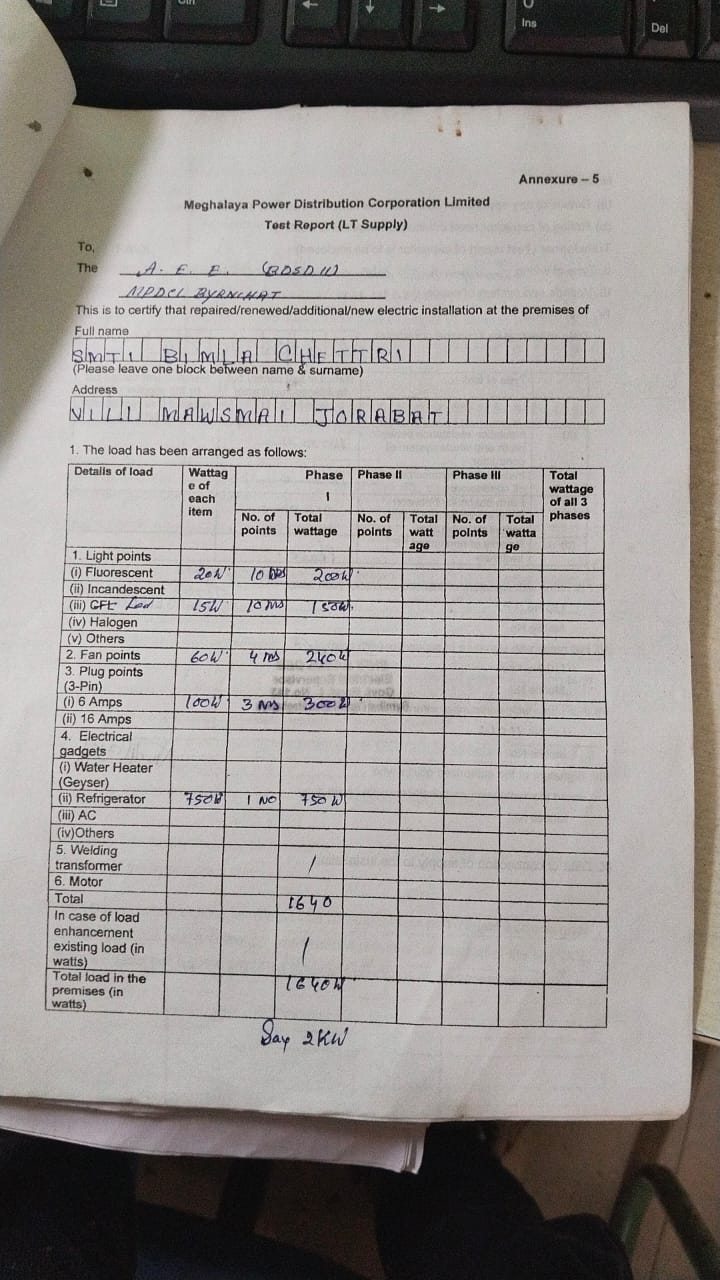 Ins
Del
Annexure – 5
Meghalaya Power Distribution Corporation Limited
Test Report (LT Supply)
To,
The A. E. E. (BDSD II)
MPDCL BYRNIHAT
This is to certify that repaired/renewed/additional/new electric installation at the premises of
Full name
SMTI BIMLA CHETTRI
(Please leave one block between name & surname)
Address
VILL MAWSMAI JORABAT
1. The load has been arranged as follows:
Details of load Wattag e of each item Phase I Phase II Phase III Total wattage of all 3 phases
No. of points Total wattage No. of points Total watt age No. of points Total watta ge
1. Light points
(i) Fluorescent 20W 10 200W
(ii) Incandescent
(iii) CFL Led 15W 10 nos 150W
(iv) Halogen
(v) Others
2. Fan points 60W 4 nos 240W
3. Plug points
(3-Pin)
(i) 6 Amps 100W 3 nos 300W
(ii) 16 Amps
4. Electrical
gadgets
(i) Water Heater
(Geyser)
(ii) Refrigerator 750W 1 NO 750W
(iii) AC
(iv)Others
5. Welding
transformer /
6. Motor
Total 1640
In case of load
enhancement
existing load (in /
watts)
Total load in the 1640W
premises (in
watts)
Say 2KW